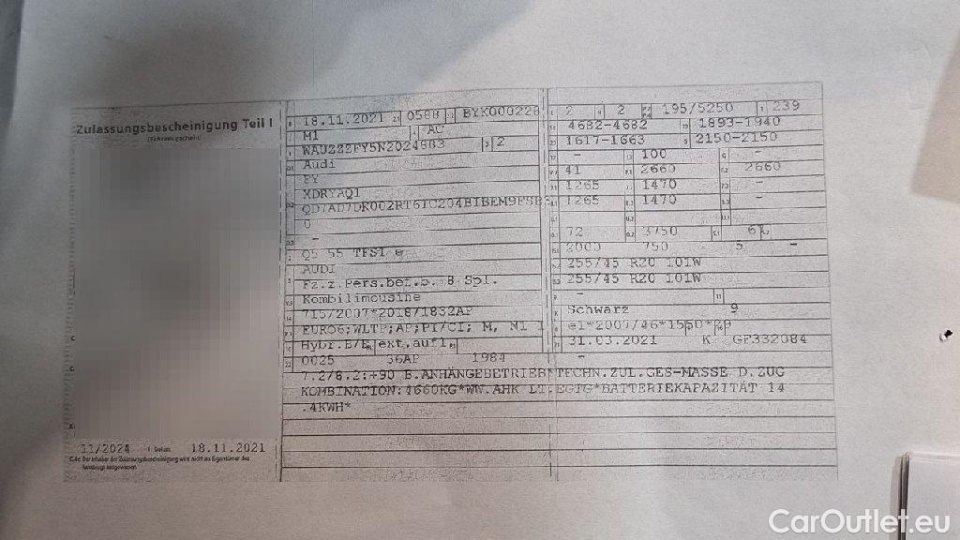 Zulassungsbescheinigung Teil I
(Fahrzeugschein)
18.11.2021 0588 BYX000228
M1 AC
2
Audi
FY
0
-
Q5 55 TFSI e
AUDI
Fz.z.Pers.bef.b. 8 Spl.
Kombilimousine
715/2007*2018/1832AP
EURO6;WLTP;AP;PI/CI; M, N1 I
Hybr.B/E ext,aufl
0025 36AP 1984
2 2 195/5250 239
4682-4682 1893-1940
1617-1663 2150-2150
- 100 -
41 2660 2660
1265 1470 -
1265 1470 -
72 3750 6
2000 750 5 -
255/45 R20 101W
255/45 R20 101W
-
Schwarz 9
31.03.2021 K GF332084
-
7.2/8.2:+90 B.ANHÄNGEBETRIEB*TECHN.ZUL.GES-MASSE D.ZUG
KOMBINATION:4660KG*WW.AHK LT.EGTG*BATTERIEKAPAZITÄT 14
.4KWH*
11/2024 18.11.2021
C.4c Der Inhaber der Zulassungsbescheinigung wird nicht als Eigentümer des
Fahrzeugs ausgewiesen.
CarOutlet.eu